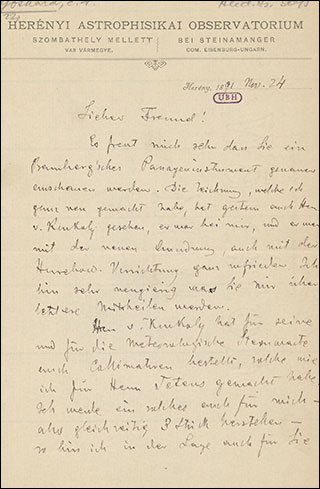 HERÉNYI ASTROPHISIKAI OBSERVATORIUM
SZOMBATHELY MELLETT
VAS VÁRMEGYE.
BEI STEINAMANGER
COM. EISENBURG-UNGARN.
Herény, 1891 Nov. 24
UBH
Lieber Freund!
Es freut mich sehr dass Sie ein
Bambergsches Passageninstrument genauer
anschauen werden. Die Zeichnung, welche ich
ganz neu gemacht habe, hat gestern auch Herr
v. Konkoly gesehen, er war bei mir, und er war
mit der neuen auch mit der
Vorrichtung ganz zufrieden. Ich
bin sehr neugierig was Sie mir über
letztere Mittheilen werden.
Herr v. Konkoly hat für seine
und für die Meteorologische Sternwarte
auch bestellt, solche wie
ich für Herrn Tetens gemacht habe
Ich werde ein solches auch für mich -
also gleichzeitig 3 Stück herstellen -
so bin ich in der Lage auch für Sie